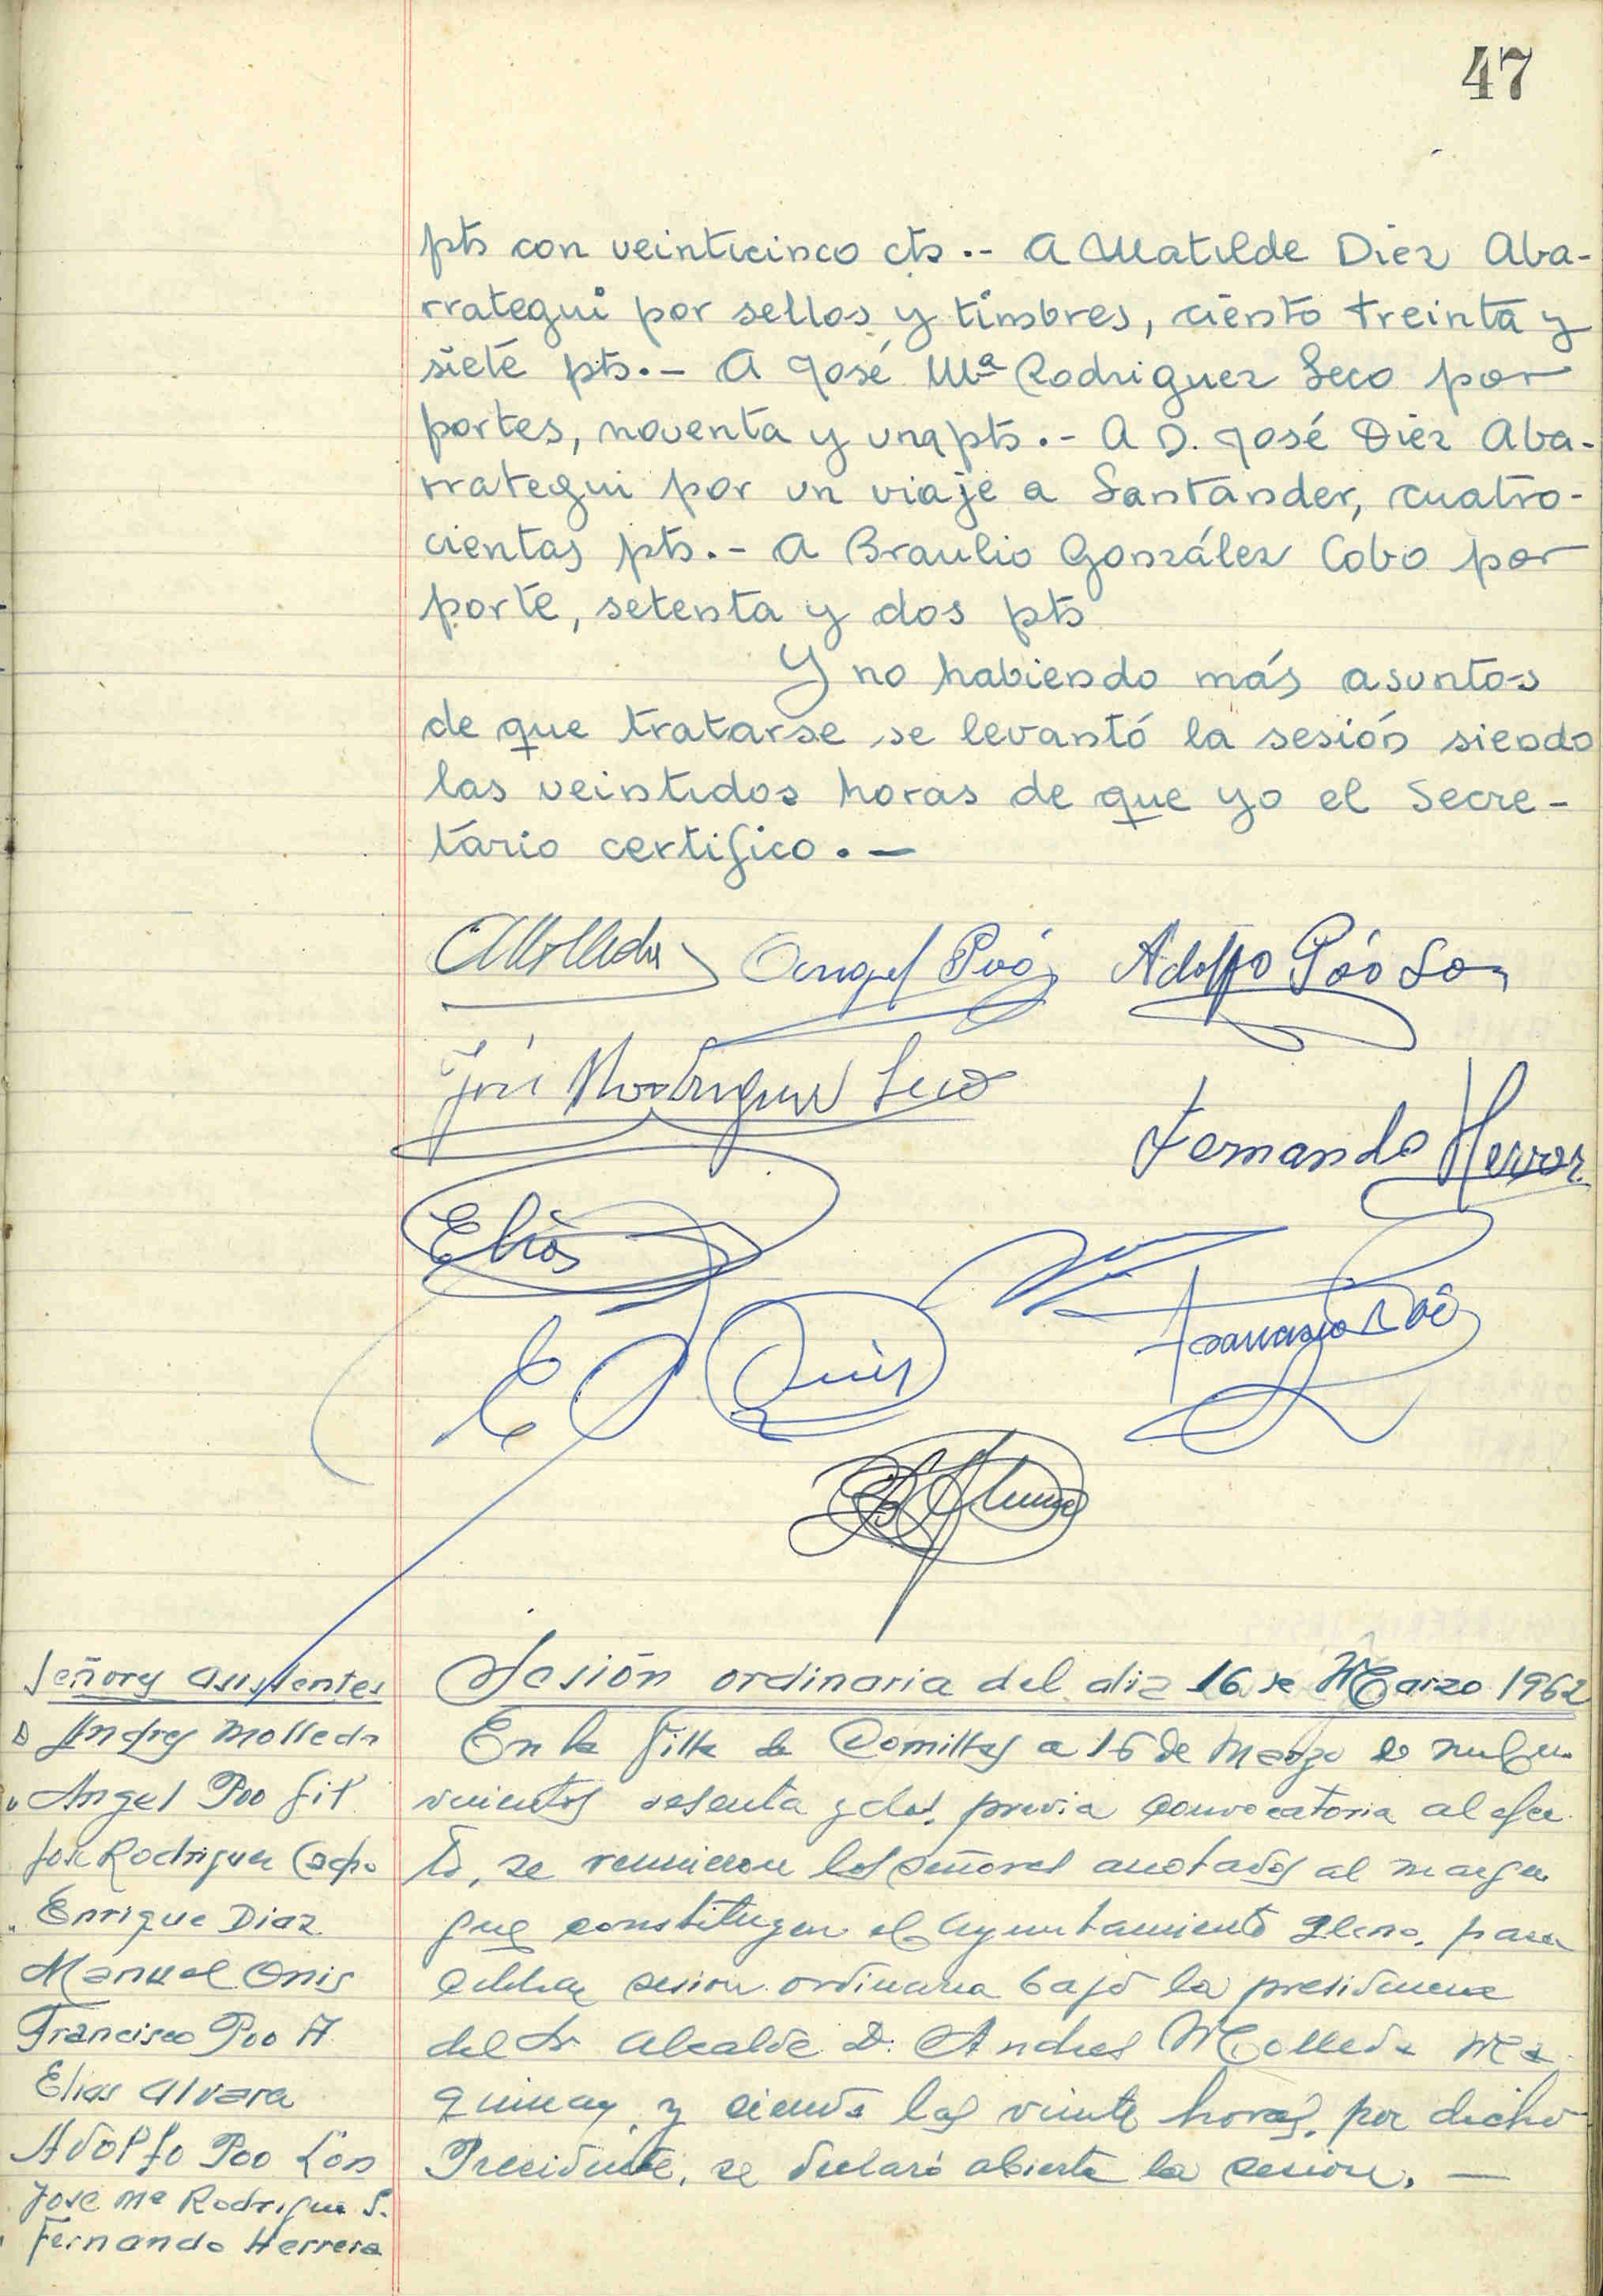 47
pts con veinticinco cts .- A Matilde Diez Aba-
rrategui por sellos y timbres, ciento treinta y
siete pts.- A José Mª Rodriguez Seco por
portes, noventa y una pts .- A D. José Diez Aba-
rrategui por un viaje a Santander, cuatro-
cientas pts.- A Braulio González Cobo por
porte, setenta y dos pts
Y no habiendo más asuntos
de que tratarse se levantó la sesión siendo
las veintidos horas de que yo el Secre-
tario certifico.-
AMolleda Angel Poó Adolfo Póo Lon
José M Rodriguez Seco
Fernando Herrer
Elias
Francisco Poó
Señores asistentes
D Andres Molleda
" Angel Poo Gil
Jose Rodriguez Cacho
" Enrique Diaz
Manuel Onis
Francisco Poo A
Elias Alvara
Adolfo Poo Lon
Jose Mª Rodrigue S.
" Fernando Herrera
Sesión ordinaria del dia 16 de Marzo 1962
En la Villa de Comillas a 16 de Marzo de mil no
vecientos sesenta y dos, previa convocatoria al efec
to, se reunieron los señores anotados al margen
que constituyen el Ayuntamiento Pleno, para
celebrar sesion ordinaria bajo la presidencia
del Sr Alcalde D. Andres Molleda
y siendo las veinte horas, por dicho
Presidente, se declaró abierta la sesion. —